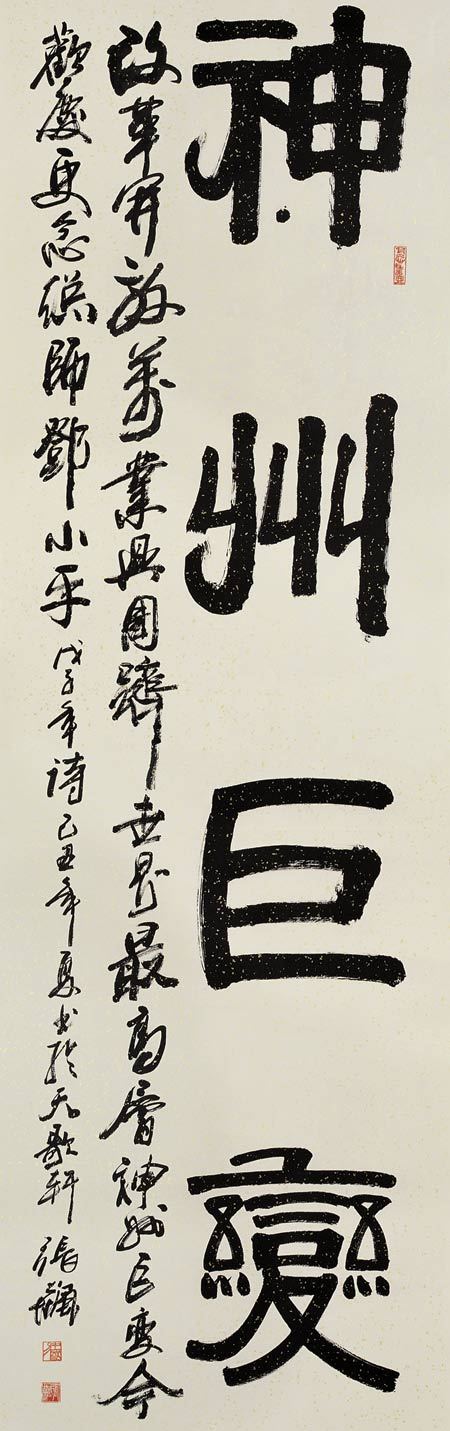 神州巨變
改革開放萬業興國躋世界最高層神州巨变今
歡慶更念總師鄧小平戊子年诗己丑年夏书於天歌轩張